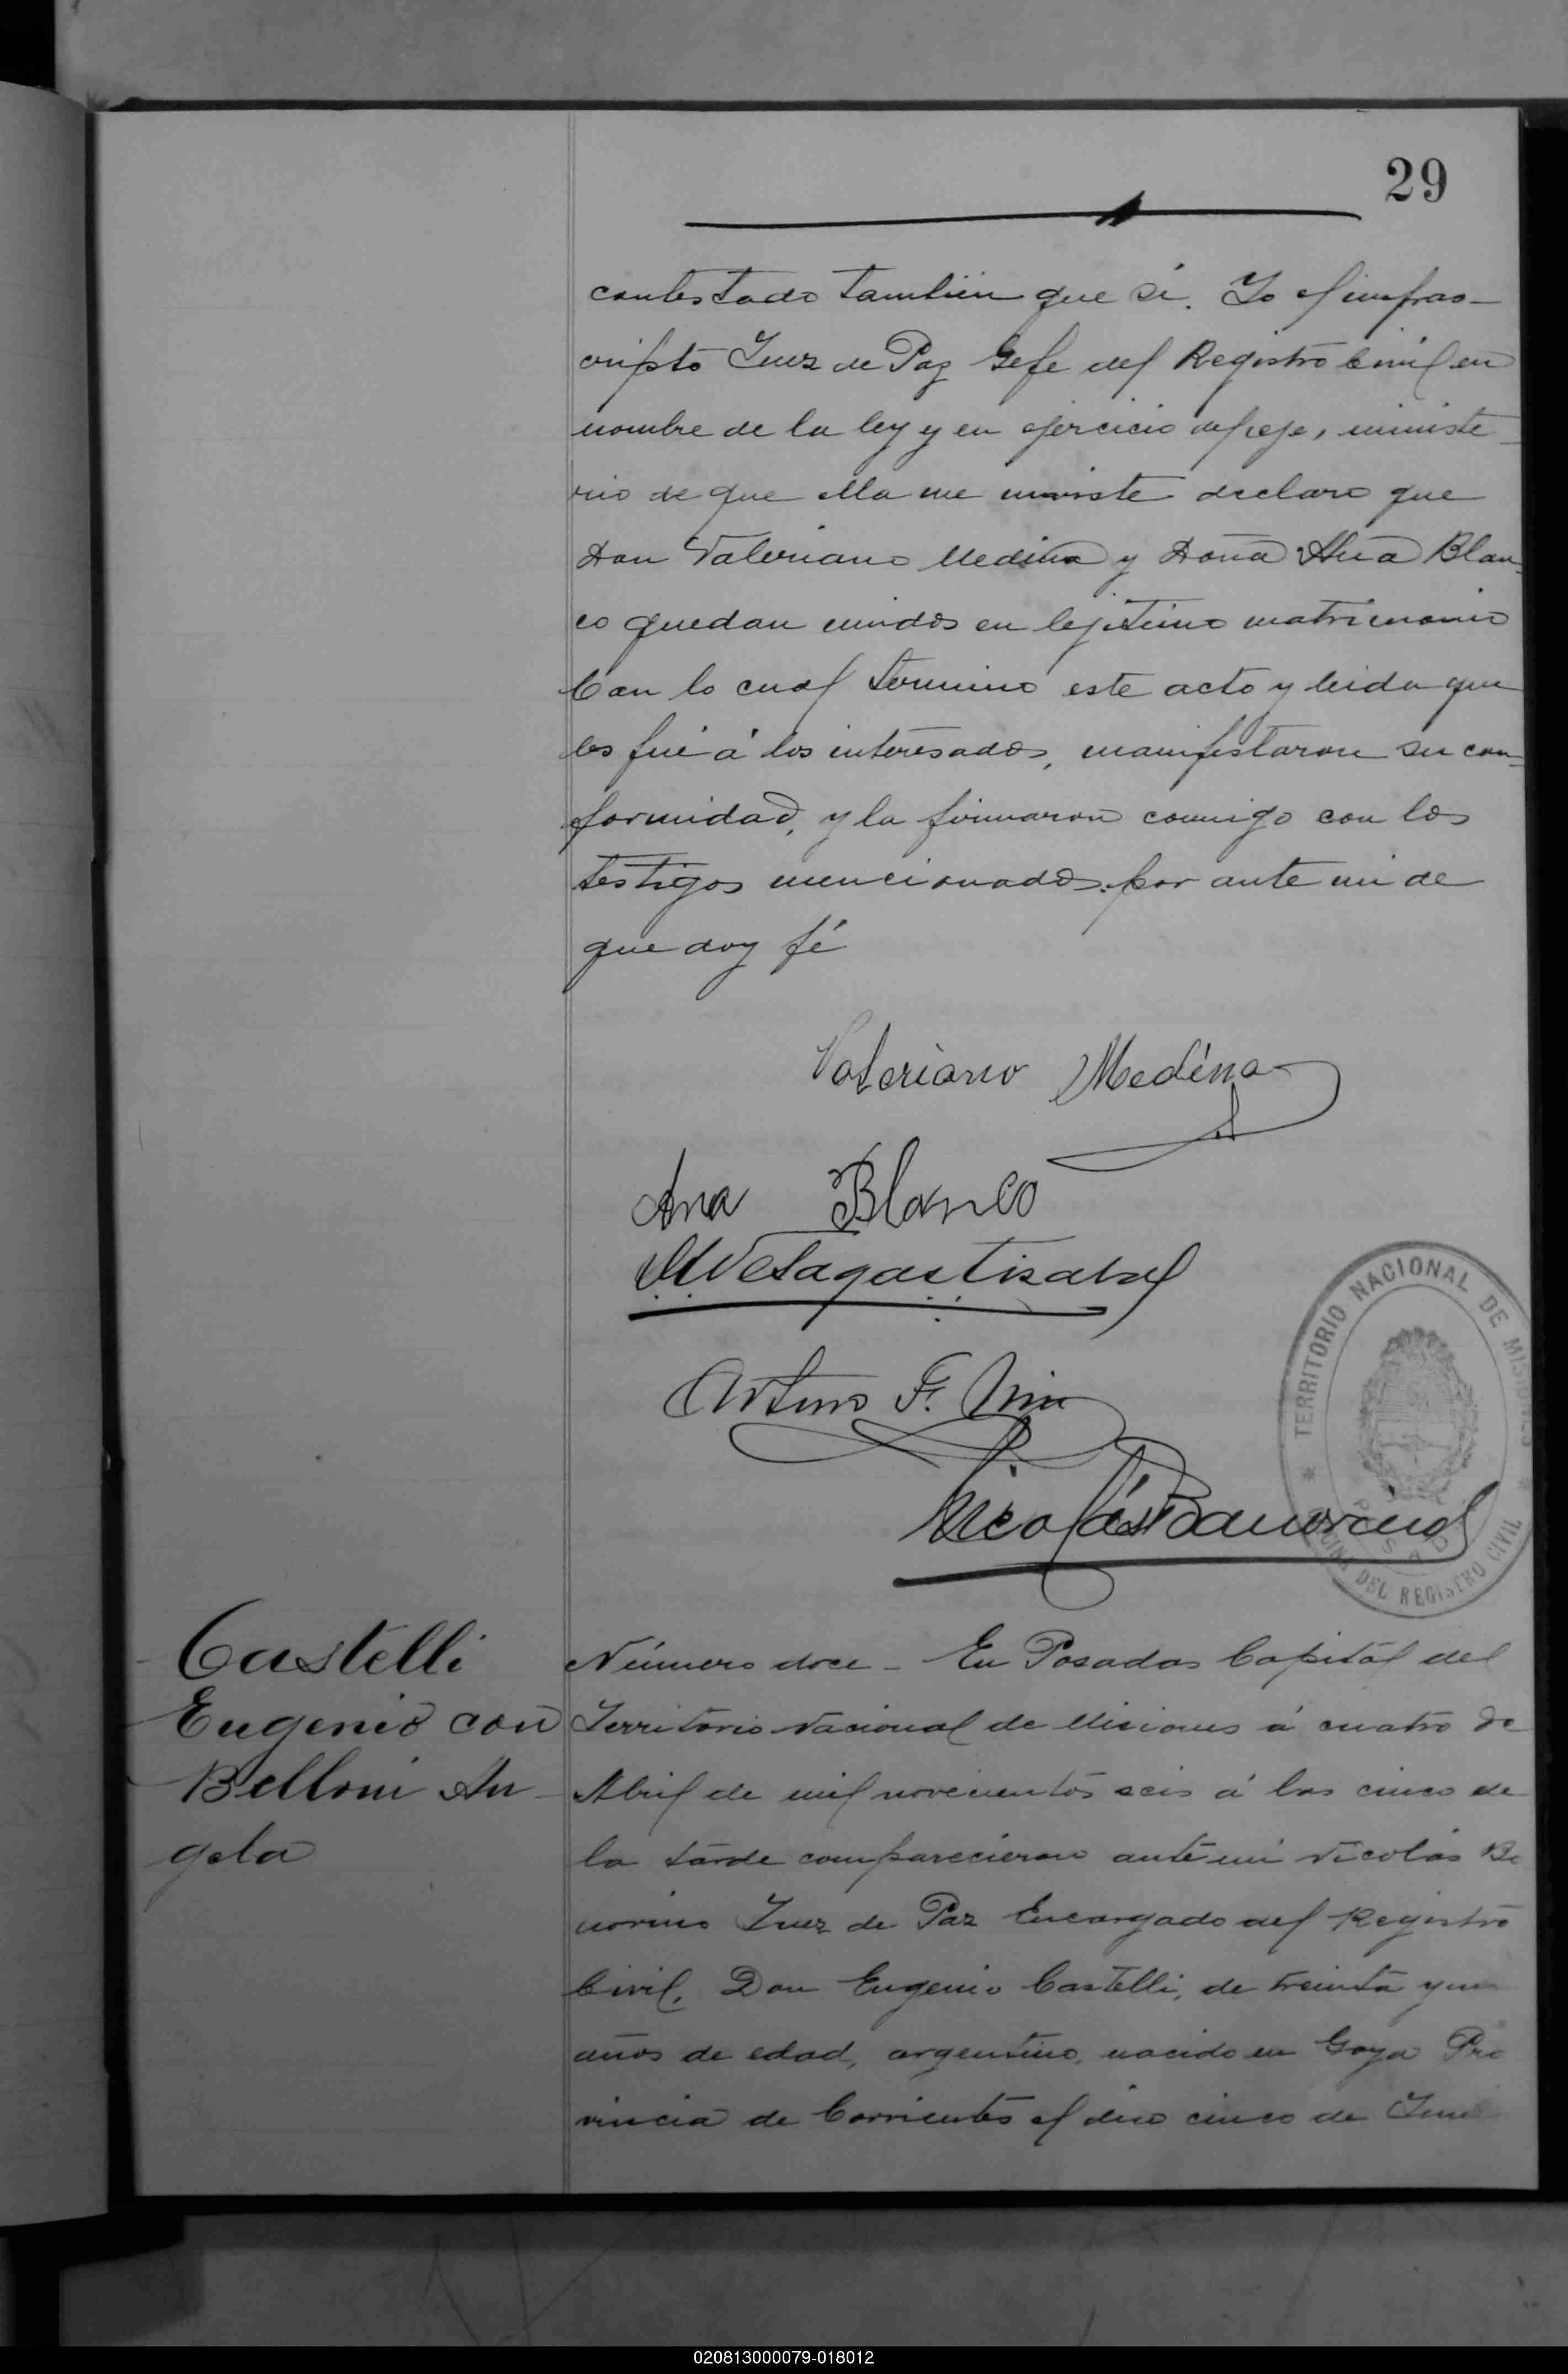 29
contestado tambiien que si. Yo el infras-
cripto Juez de Paz Gefe del Registro Civil en
nombre de la ley y en ejercicio del ministe-
rio de que ella me inviste declaro que
Don Valeriano Medina y Doña Ana Blan-
co quedan unidos en lejitimo matrimonio
Con lo cual termino este acto y leida que
les fué á los interesados, manifestaron su con-
formidad, y la firmaron conmigo con los
testigos mencionados por ante mi de
que doy fé
Valeriano Medina
Ana Blanco
Arturo F.
Nicolás
TERRITORIO NACIONAL DE MISIONES
OFICINA DEL REGISTRO CIVIL
POSADAS
Castelli
Eugenio con
Belloni An-
gela
Número doce - En Posadas Capital del
Territorio Nacional de Misiones á cuatro de
Abril de mil novecientos seis á las cinco de
la tarde comparecieron ante mi Nicolás Be
norino Juez de Paz Encargado del Registro
Civil, Don Eugenio Castelli, de treinta y un
años de edad, argentino, nacido en Goya Pro
vincia de Corrientes el dia cinco de
020813000079-018012